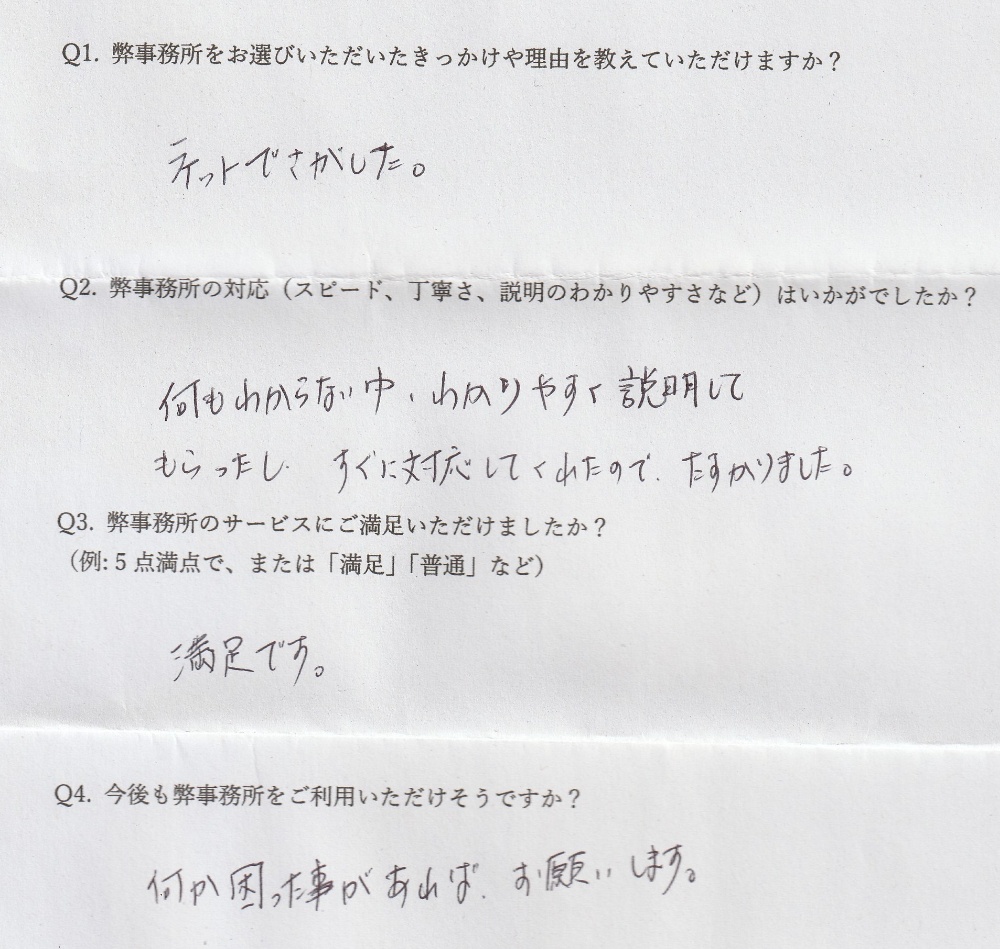 Q1. 弊事務所をお選びいただいたきっかけや理由を教えていただけますか？
ネットでさがした。
Q2. 弊事務所の対応（スピード、丁寧さ、説明のわかりやすさなど）はいかがでしたか？
何もわからない中、わかりやすく説明して
もらったし、すぐに対応してくれたので、たすかりました。
Q3. 弊事務所のサービスにご満足いただけましたか？
（例: 5 点満点で、または「満足」「普通」など）
満足です。
Q4. 今後も弊事務所をご利用いただけそうですか？
何か困った事があれば、お願いします。